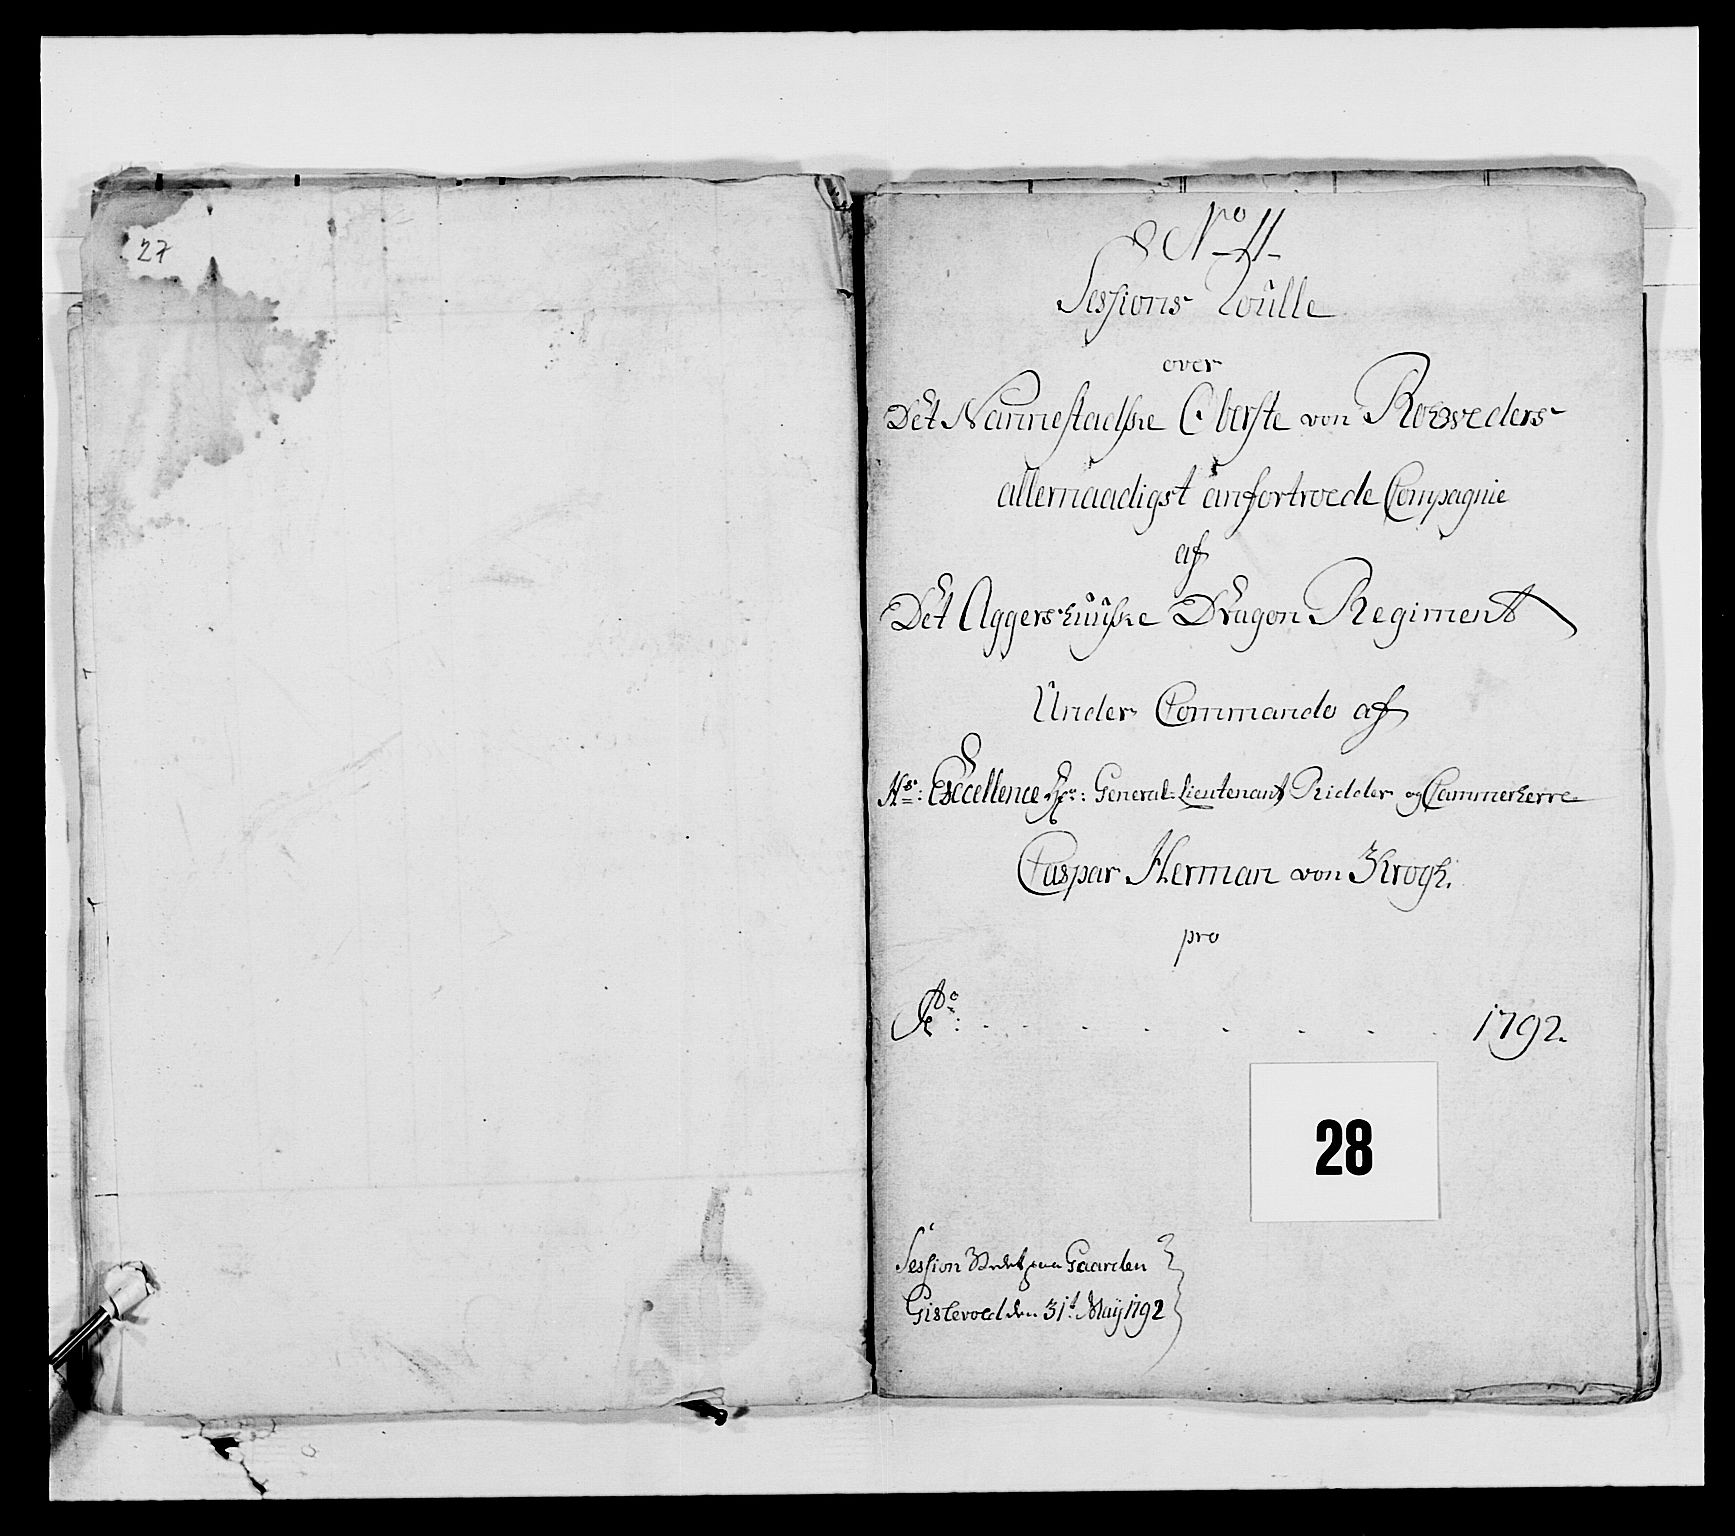 27
No 11
Sessions Roulle
over
Det Nannestadske Oberste von Roepsteders
allernaadigst anfortroede Compagnie
af
Det Aggershuuske Dragon Regiment
Under Commando af
Hs: Excellence Hr: General-Lieutenant Ridder og Cammerherre
Caspar Herman von Krogh.
pro
Ao: . . . . . . . . 1792.
28
Session holdet paa Gaarden
Gislevold den 31t May 1792